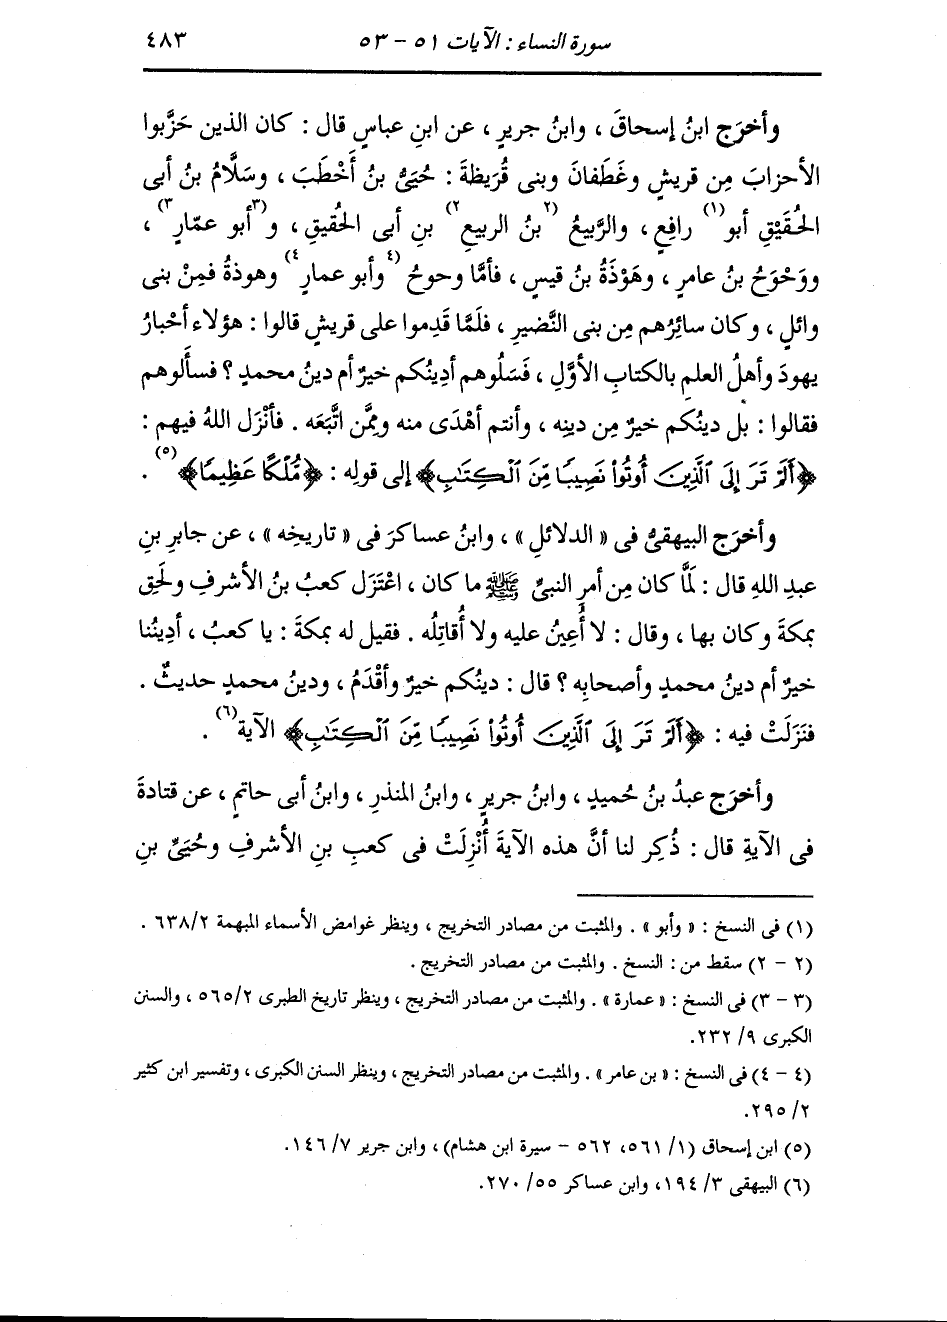 سورة النساء : الآيات ٥١ - ٥٣ ٤٨٣
وأخرَج ابنُ إسحاقَ ، وابنُ جريرٍ ، عن ابنِ عباسٍ قال : كان الذين حَزَّبوا
الأحزابَ مِن قريشٍ وغَطَفانَ وبنى قُرَيظةَ : حُيَىُّ بنُ أَخْطَبَ ، وسَلَّامُ بنُ أبى
الحُقَيْقِ أبو(١) رافِعٍ ، والرَّبيعُ (٢بنُ الربيعِ٢) بنِ أبى الحُقيقِ ، و(٣أبو عمّارٍ٣) ،
ووَحْوَحُ بنُ عامرٍ ، وهَوْذَةُ بنُ قيسٍ ، فأمَّا وحوحُ (٤وأبو عمارٍ٤) وهوذةُ فمِنْ بنى
وائلٍ ، وكان سائِرُهم مِن بنى النَّضيرِ ، فلَمَّا قَدِموا على قريشٍ قالوا : هؤلاء أحْبارُ
يهودَ وأهلُ العلمِ بالكتابِ الأوَّلِ ، فسَلُوهم أدِينُكم خيرٌ أم دينُ محمدٍ ؟ فسألُوهم
فقالوا : بل دينُكم خيرٌ مِن دينِه ، وأنتم أهْدَى منه وممَّن اتَّبَعَه . فأنْزَل اللهُ فيهم :
﴿أَلَمْ تَرَ إِلَى ٱلَّذِينَ أُوتُواْ نَصِيبًا مِّنَ ٱلْكِتَـٰبِ﴾ إلى قولِه : ﴿مُّلْكًا عَظِيمًا﴾(٥) .
وأخرَج البيهقىُّ فى « الدلائلِ » ، وابنُ عساكرَ فى « تاريخِه » ، عن جابرِ بنِ
عبدِ اللهِ قال : لمَّا كان مِن أمرِ النبىِّ ﷺ ما كان ، اعْتَزَل كعبُ بنُ الأشرفِ ولَحِق
بمكةَ وكان بها ، وقال : لا أُعِينُ عليه ولا أُقاتِلُه . فقيل له بمكةَ : يا كعبُ ، أدِينُنا
خيرٌ أم دينُ محمدٍ وأصحابِه ؟ قال : دينُكم خيرٌ وأقْدَمُ ، ودينُ محمدٍ حديثٌ .
فنَزَلَتْ فيه : ﴿أَلَمْ تَرَ إِلَى ٱلَّذِينَ أُوتُواْ نَصِيبًا مِّنَ ٱلْكِتَـٰبِ﴾ الآية(٦) .
وأخرَج عبدُ بنُ حُميدٍ ، وابنُ جريرٍ ، وابنُ المنذرِ ، وابنُ أبى حاتمٍ ، عن قتادةَ
فى الآيةِ قال : ذُكِر لنا أنَّ هذه الآيةَ أُنْزِلَتْ فى كعبِ بنِ الأشرفِ وحُيَىِّ بنِ
(١) فى النسخ : « وأبو » . والمثبت من مصادر التخريج ، وينظر غوامض الأسماء المبهمة ٦٣٨/٢ .
(٢ - ٢) سقط من : النسخ . والمثبت من مصادر التخريج .
(٣ - ٣) فى النسخ : « عمارة » . والمثبت من مصادر التخريج ، وينظر تاريخ الطبرى ٥٦٥/٢ ، والسنن
الكبرى ٩/ ٢٣٢.
(٤ - ٤) فى النسخ : « بن عامر » . والمثبت من مصادر التخريج ، وينظر السنن الكبرى ، وتفسير ابن كثير
٢/ ٢٩٥.
(٥) ابن إسحاق (١/ ٥٦١، ٥٦٢ - سيرة ابن هشام) ، وابن جرير ٧/ ١٤٦.
(٦) البيهقى ٣/ ١٩٤، وابن عساكر ٥٥/ ٢٧٠.